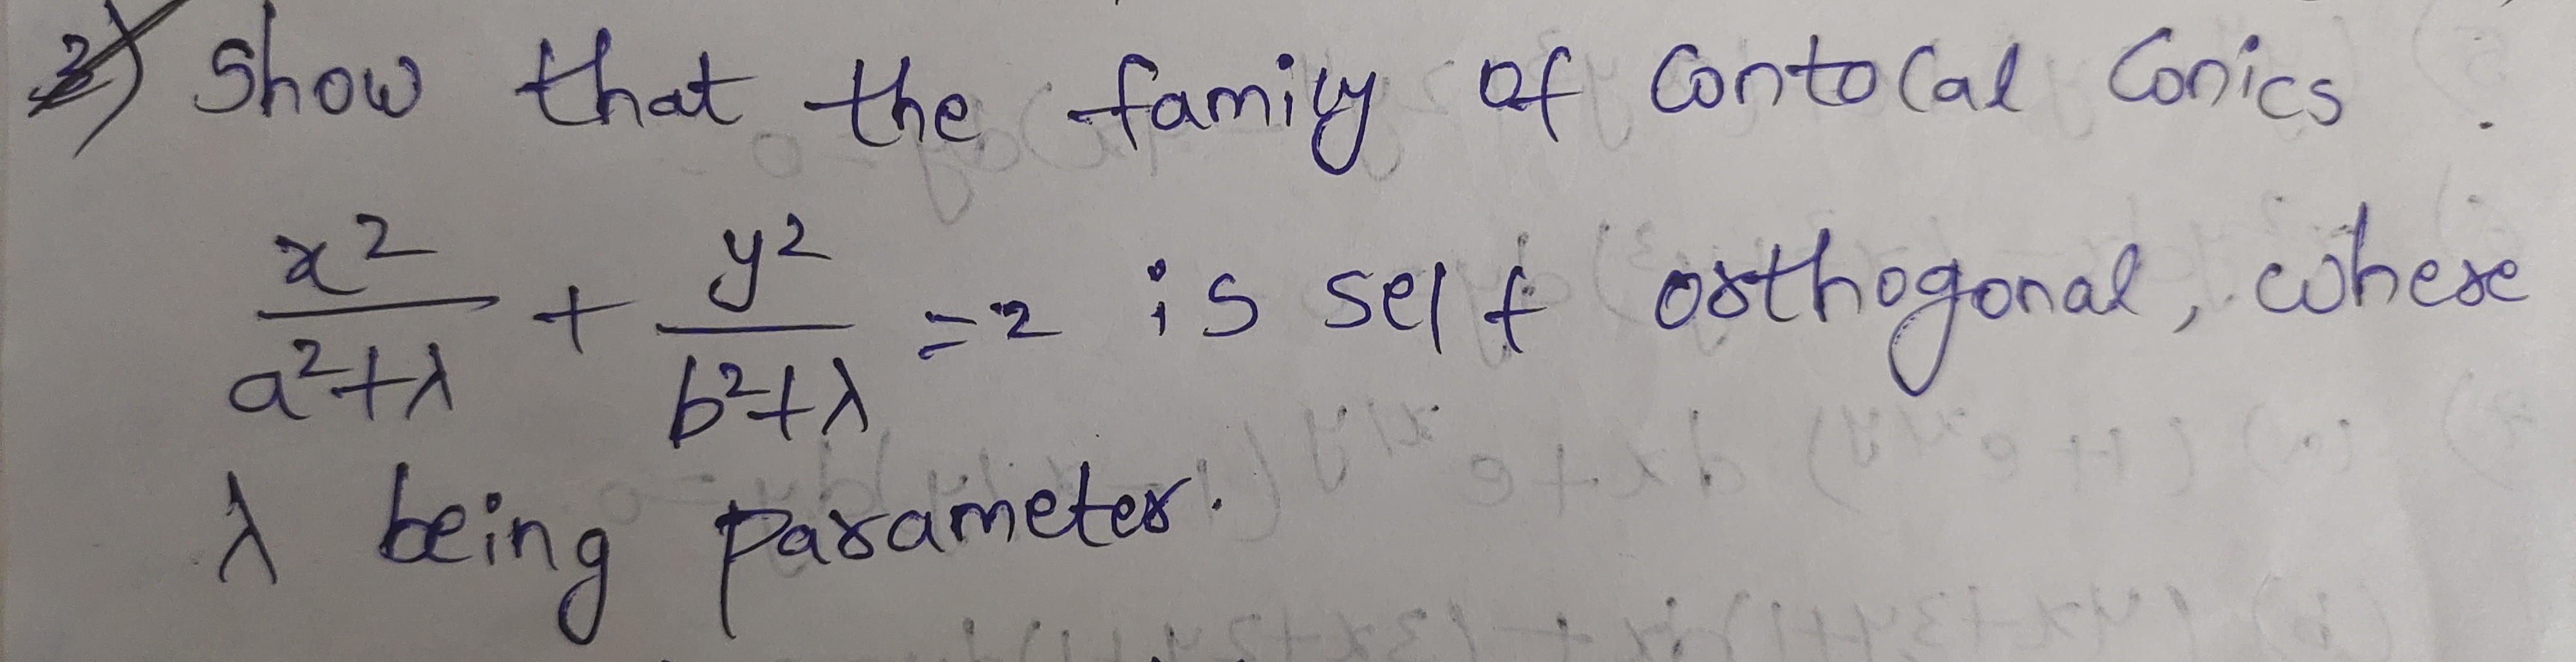 3) Show that the family of Contocal Conics.
x²/(a²+λ) + y²/(b²+λ) =2 is self orthogonal, where
λ being parameter.